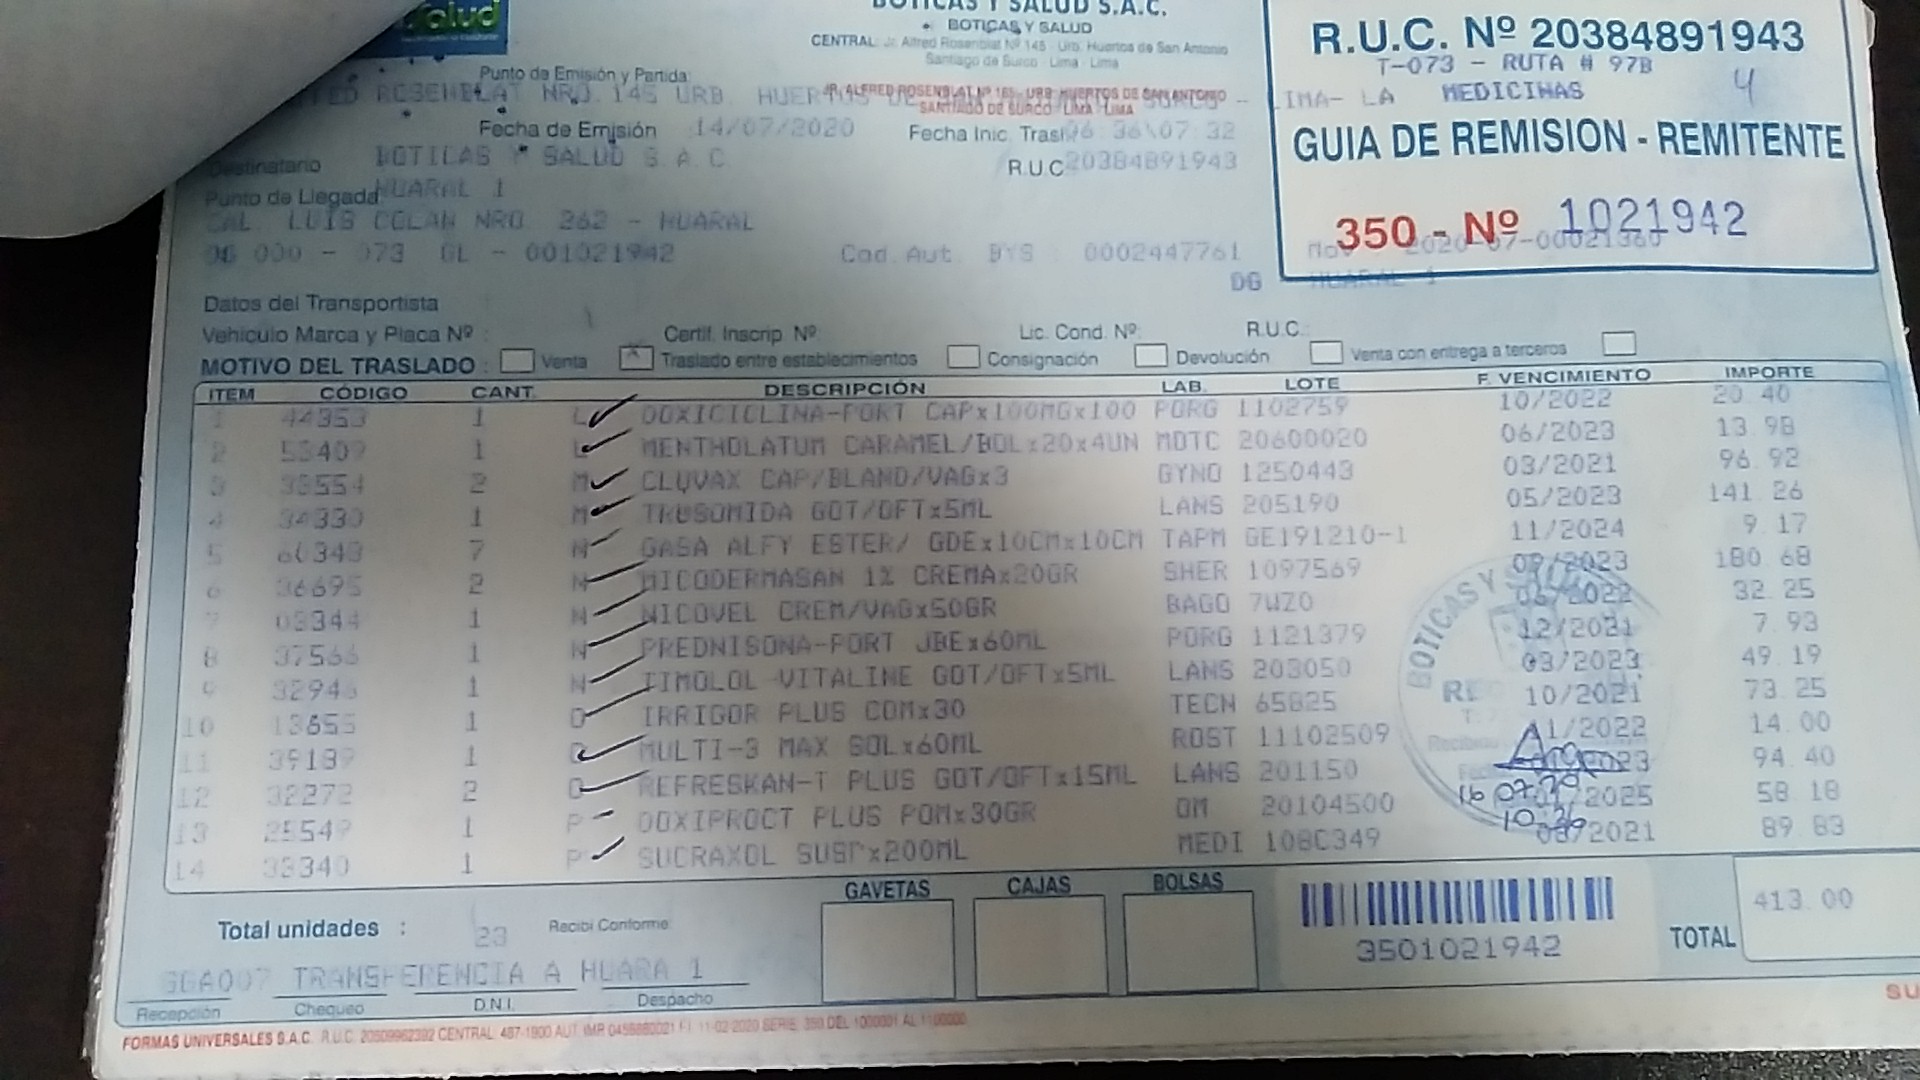 Salud
BOTICAS Y SALUD S.A.C.
BOTICAS Y SALUD
CENTRAL: Jr. Alfred Rosenblat Nº 145 - Urb. Huertos de San Antonio
Santiago de Surco - Lima - Lima
R.U.C. Nº 20384891943
T-073 - RUTA # 97B
MEDICINAS 4
GUIA DE REMISION - REMITENTE
350 - Nº 1021942
Punto de Emisión y Partida:
ROSENBLAT NRO. 145 URB. HUERTOS DE LIMA- LA
JR. ALFRED ROSENBLAT Nº 165 - URB. HUERTOS DE SAN ANTONIO
SANTIAGO DE SURCO - LIMA - LIMA
Fecha de Emisión 14/07/2020 Fecha Inic. Trasl 06:36\07:32
Destinatario BOTICAS Y SALUD S.A.C. R.U.C 20384891943
Punto de Llegada HUARAL 1
CAL. LUIS COLAN NRO. 262 - HUARAL
073 GL - 001021942 Cod. Aut. BYS : 0002447761 2020-07-00021360
DG HUARAL 1
Datos del Transportista
Vehiculo Marca y Placa Nº : Certif. Inscrip Nº: Lic. Cond. Nº: R.U.C.:
MOTIVO DEL TRASLADO : Venta Traslado entre establecimientos Consignación Devolución Venta con entrega a terceros
ITEM CÓDIGO CANT. DESCRIPCIÓN LAB. LOTE F. VENCIMIENTO IMPORTE
1 44353 1 L DOXICICLINA-PORT CAPx100MGx100 PORG 1102759 10/2022 20.40
2 53409 1 L MENTHOLATUM CARAMEL/BOLx20x4UN MDTC 20600020 06/2023 13.98
3 33554 2 M CLUVAX CAP/BLAND/VAGx3 GYNO 1250443 03/2021 96.92
4 34330 1 M TRUSOMIDA GOT/OFTx5ML LANS 205190 05/2023 141.26
5 60343 7 N GASA ALFY ESTER/ GDEx10CMx10CM TAPM GE191210-1 11/2024 9.17
6 36695 2 N MICODERMASAN 1% CREMAx20GR SHER 1097569 09/2023 180.68
7 03344 1 N NICOVEL CREM/VAGx50GR BAGO 7WZ0 06/2022 32.25
8 37566 1 N PREDNISONA-PORT JBEx60ML PORG 1121379 12/2021 7.93
9 32946 1 N TIMOLOL VITALINE GOT/OFTx5ML LANS 203050 03/2023 49.19
10 13655 1 O IRRIGOR PLUS COMx30 TECN 65825 10/2021 73.25
11 39189 1 O MULTI-3 MAX SOLx60ML ROST 11102509 11/2022 14.00
12 32272 2 O REFRESKAN-T PLUS GOT/OFTx15ML LANS 201150 94.40
13 25549 1 P DOXIPROCT PLUS POMx30GR OM 20104500 /2025 58.18
14 33340 1 P SUCRAXOL SUSPx200ML MEDI 108C349 08/2021 89.83
BOTICAS Y
16 07 20
10:36
GAVETAS CAJAS BOLSAS
Total unidades : 23 Recibi Conforme:
3501021942
TOTAL 413.00
GGA007 TRANSFERENCIA A HUARA 1
Recepción Chequeo D.N.I. Despacho
SU
FORMAS UNIVERSALES S.A.C. R.U.C. 20509962392 CENTRAL: 487-1900 AUT. IMP. 0456880021 F.I. 11-02-2020 SERIE: 350 DEL 1000001 AL 1100000